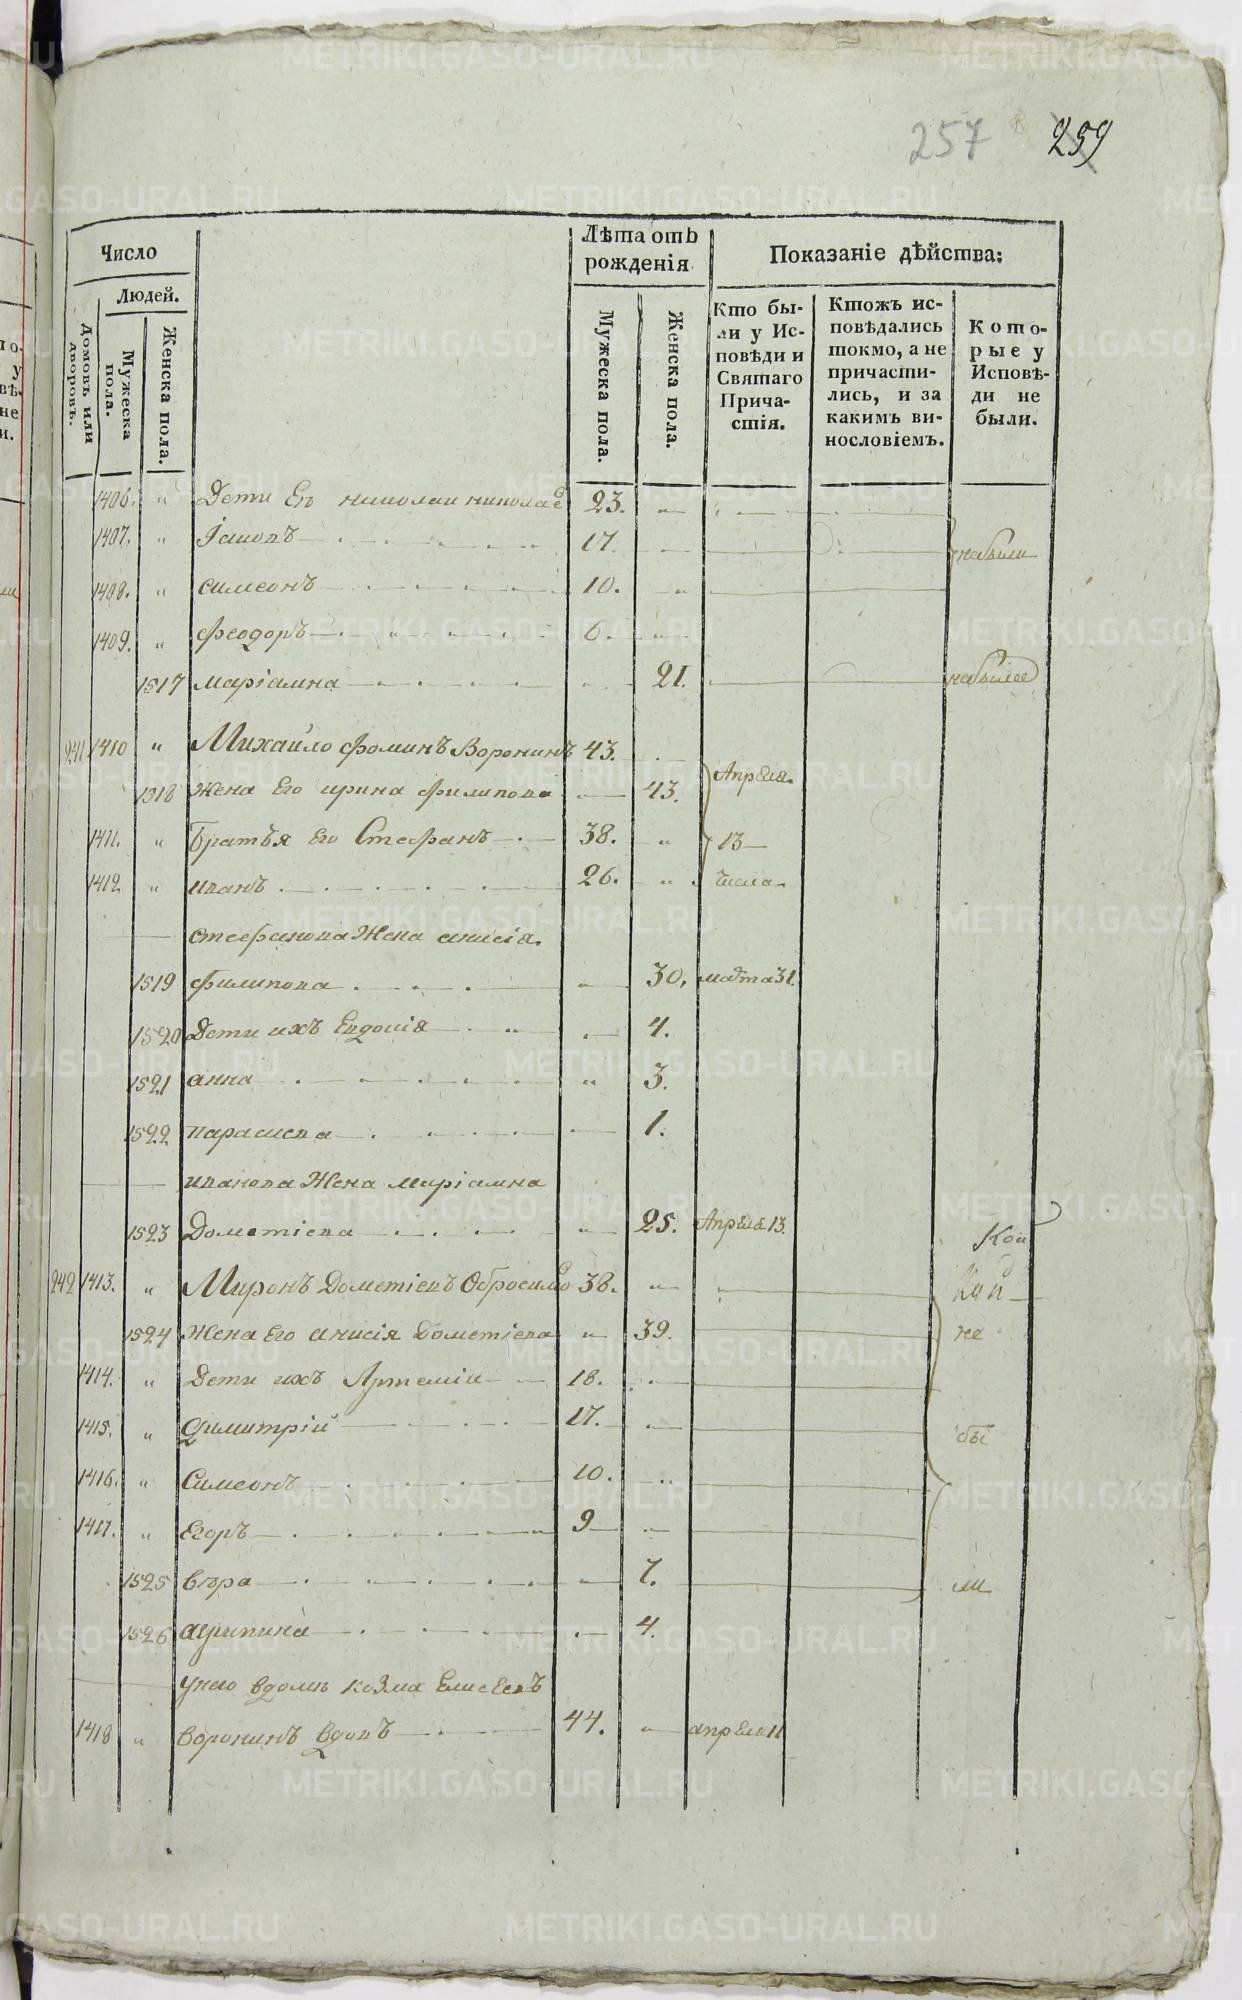 257 259
Число
Людей.
Домовъ или дворовъ.
Мужеска пола.
Женска пола.
Лѣта отъ рожденія
Мужеска пола.
Женска пола.
Показаніе дѣйства:
Кто были у Исповѣди и Святаго Причастія.
Ктожъ исповѣдались токмо, а не причастились, и за какимъ винословіемъ.
Которые у Исповѣди не были.
1406. " Дети Его николаи 23. "
1407. " Іаковъ 17.
1408. " симеонъ 10. "
1409. " феодоръ 6. "
1517 маріамна 21.
241 1410 " Михайло фоминъ Воронинъ 43.
1518 жена Его ирина филипова 43. Апреля
1411. " Братья Его Стефанъ 38. " 13
1412 " иванъ 26. " числа
стефанова жена анисія
1519 филипова " 30. марта 31.
1520 Дети ихъ Евдокія 4.
1521 анна " 3.
1522 параскева 1.
иванова жена маріамна
1523 Дометіева " 25. Апреля 13.
242 1413. " Миронъ Дометіевъ 38. "
1524 жена Его анисія Дометіева " 39. не
1414. " Дети ихъ Артемій 18.
1415. " Димитрій 17. бы
1416. " Симеонъ 10. "
1417. " Егоръ 9
1525 вѣра 7. ли
1526 агрипина 4.
унего вдомѣ козма Елисеевъ
1418 " воронинъ вдовъ 44. " апреля 11
METRIKI.GASO-URAL.RU